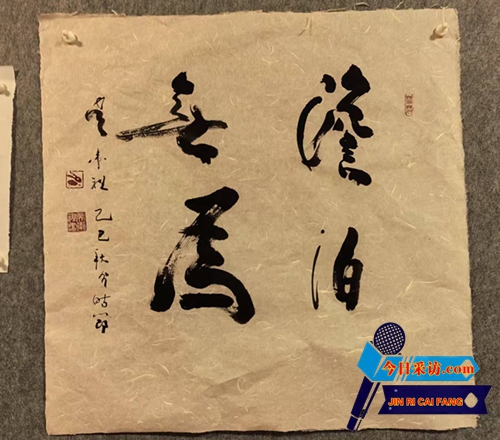 澹泊
無為
乙巳秋分時節
今日采访.com
JIN RI CAI FANG